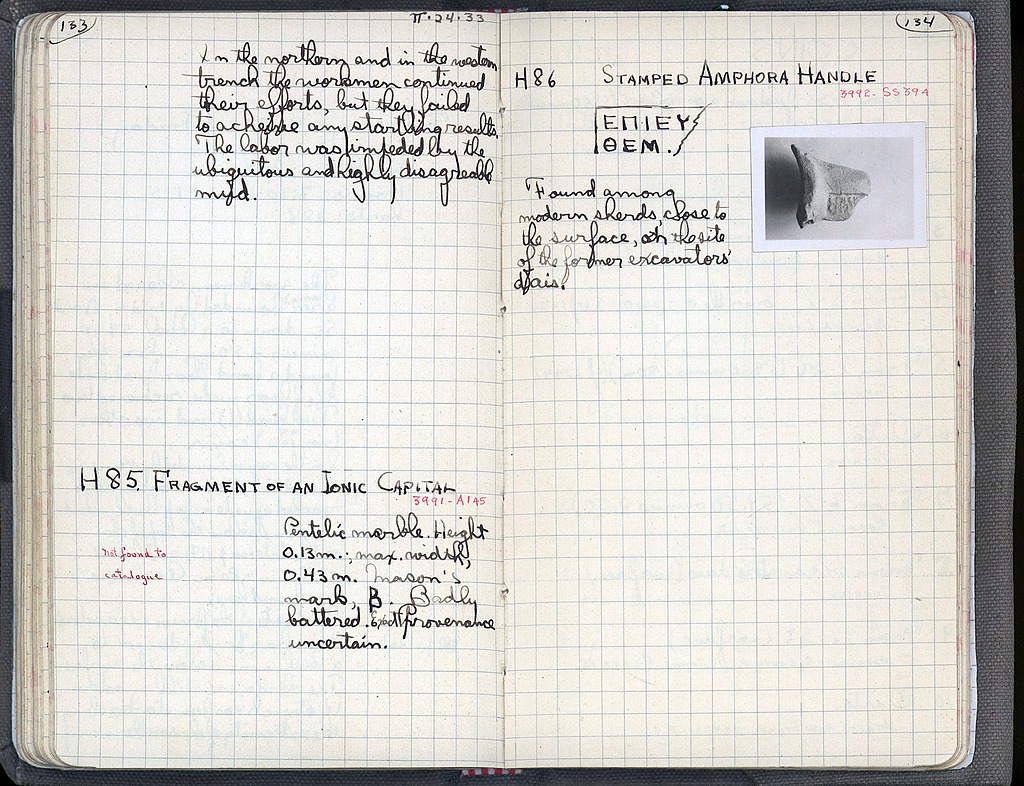 133
II·24·33
In the northern and in the western
trench the workmen continued
their efforts, but they failed
to acheive any startling results.
The labor was impeded by the
ubiquitous and highly disagreeable
mud.
H 85. FRAGMENT OF AN IONIC CAPITAL
3991-A145
Pentelic marble. Height
0.13 m.; max. width,
0.43 m. Mason's
mark, B. Badly
battered. Exact provenance
uncertain.
not found to
catalogue
134
H86 STAMPED AMPHORA HANDLE
3992-SS394
ΕΠΙΕΥ
ΘΕΜ.
Found among
modern sherds, close to
the surface, on the site
of the former excavators'
dais.